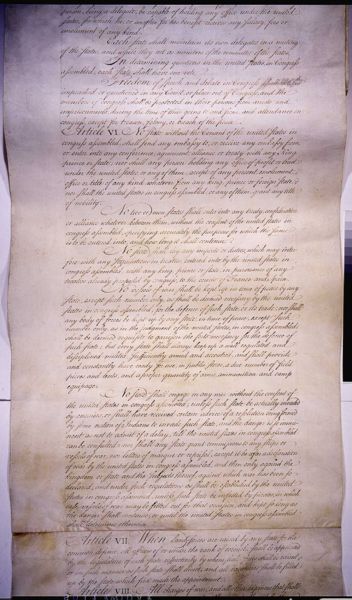 person, being a delegate, be capable of holding any office under the united
states, for which he, or another for his benefit receives any salary, fees or
emolument of any kind.
Each state shall maintain its own delegates in a meeting
of the states, and while they act as members of the committee of the states.
In determining questions in the united states in Congress
assembled, each state shall have one vote.
Freedom of speech and debate in Congress shall not be
impeached or questioned in any Court, or place out of Congress, and the
members of congress shall be protected in their persons from arrests and
imprisonments, during the time of their going to and from, and attendance
on congress, except for treason, felony, or breach of the peace.
Article VI. No state without the Consent of the united states in
congress assembled, shall send any embassy to, or receive any embassy from,
or enter into any conference, agreement, alliance or treaty with any King
prince or state; nor shall any person holding any office of profit or trust
under the united states, or any of them, accept of any present, emolument,
office or title of any kind whatever from any king, prince or foreign state;
nor shall the united states in congress assembled, or any of them, grant any title
of nobility.
No two or more states shall enter into any treaty, confederation
or alliance whatever between them, without the consent of the united states in
congress assembled, specifying accurately the purposes for which the same
is to be entered into, and how long it shall continue.
No state shall lay any imposts or duties, which may inter-
fere with any stipulations in treaties, entered into by the united states
in congress assembled, with any king, prince or state, in pursuance of any
treaties already proposed by congress, to the courts of France and Spain.
No vessels of war shall be kept up in time of peace by any
state, except such number only, as shall be deemed necessary by the united
states in congress assembled, for the defence of such state, or its trade; nor shall
any body of forces be kept up by any state, in time of peace, except such
number only, as in the judgment of the united states, in congress assembled,
shall be deemed requisite to garrison the forts necessary for the defence of
such state; but every state shall always keep up a well regulated and
disciplined militia, sufficiently armed and accoutred, and shall provide
and constantly have ready for use, in public stores, a due number of field
pieces and tents, and a proper quantity of arms, ammunition and camp
equipage.
No state shall engage in any war without the consent of
the united states in congress assembled, unless such state be actually invaded
by enemies, or shall have received certain advice of a resolution being formed
by some nation of Indians to invade such state, and the danger is so immi-
nent as not to admit of a delay, till the united states in congress assembled
can be consulted: nor shall any state grant commissions to any ships or
vessels of war, nor letters of marque or reprisal, except it be after a declaration
of war by the united states in congress assembled, and then only against the
kingdom or state and the subjects thereof, against which war has been so
declared, and under such regulations as shall be established by the united
states in congress assembled, unless such state be infested by pirates, in which
case vessels of war may be fitted out for that occasion, and kept so long as
the danger shall continue, or until the united states in congress assembled
shall determine otherwise.
Article VII. When land-forces are raised by any state for the
common defence, all officers of or under the rank of colonel, shall be appointed
by the legislature of each state respectively by whom such forces shall be raised,
or in such manner as such state shall direct, and all vacancies shall be filled
up by the state which first made the appointment.
Article VIII. All charges of war, and all other expences that shall